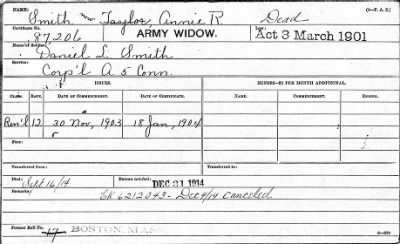 Smith now Taylor, Annie R. Dead (3-F. A. R.)
Certificate No. 87,206 ARMY WIDOW. Law: Act 3 March 1901
Name of Soldier: Daniel L. Smith
Service: Corp'l A 5 Conn.
ISSUES. MINORS—$2 PER MONTH ADDITIONAL.
Class. Rate. Date of Commencement. Date of Certificate. Name. Commencing. Ending.
Ren'l 12 30 Nov, 1903 18 Jan, 1904
Fees:
Transferred from: Transferred to:
Died: Sept 16/14 Bureau notified: DEC 21 1914
Remarks: Ck 6212043 - Dec 4/14 canceled
Former Roll No. 17 BOSTON, MASS.